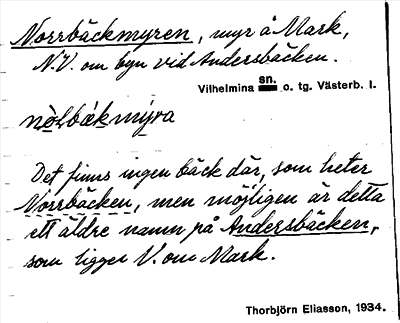 Norrbäckmyren, myr å Mark,
N.V. om byn vid Andersbäcken.
Vilhelmina sn. o. tg. Västerb. l.
nòḷbäkmỳra
Det finns ingen bäck där, som heter
Norrbäcken, men möjligen är detta
ett äldre namn på Andersbäcken,
som ligger V. om Mark.
Thorbjörn Eliasson, 1934.